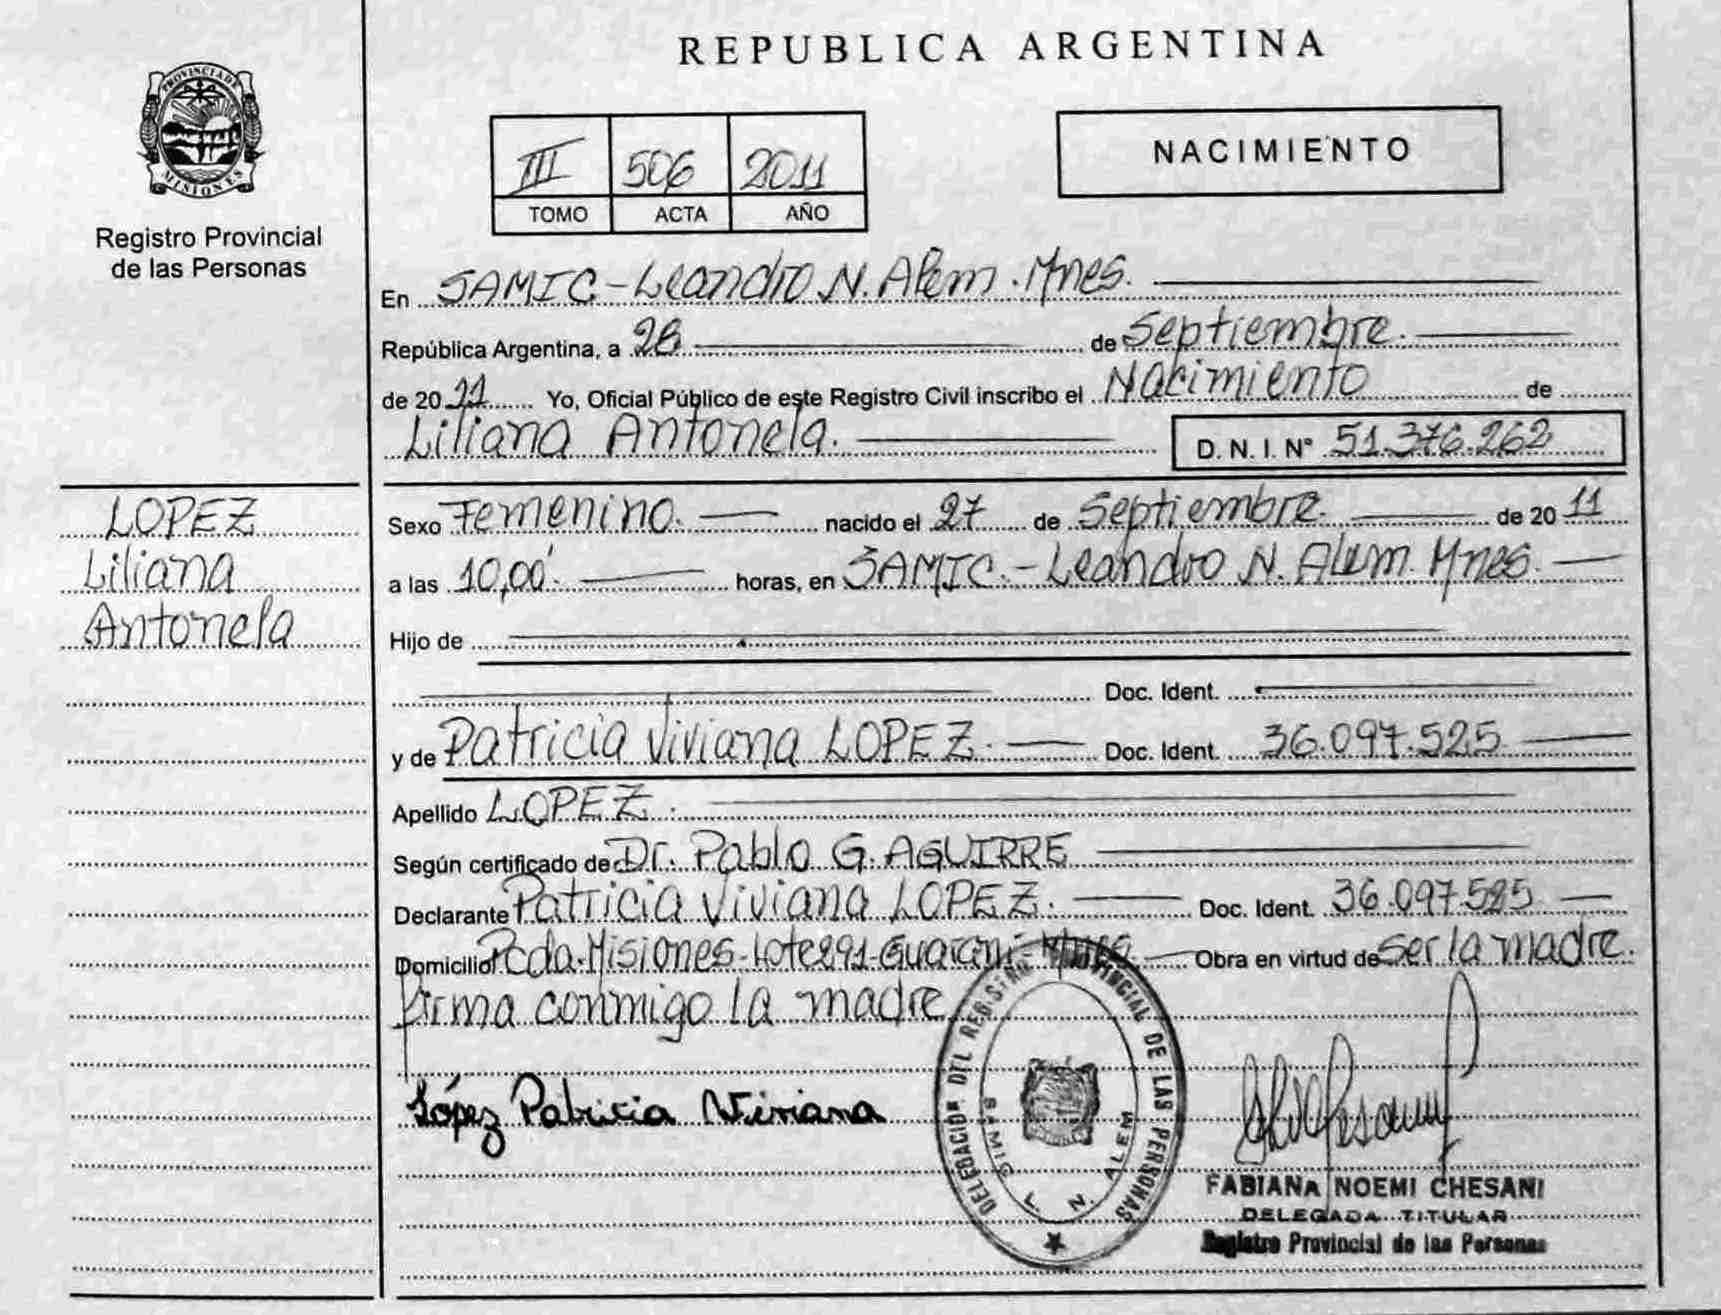 REPUBLICA ARGENTINA
PROVINCIA DE
MISIONES
Registro Provincial
de las Personas
III 506 2011
TOMO ACTA AÑO
NACIMIENTO
En SAMIC - Leandro N. Alem. Mnes.
República Argentina, a 28 de Septiembre.
de 2011 Yo, Oficial Público de este Registro Civil inscribo el Nacimiento de
Liliana Antonela. D. N. I. N° 51.376.262
LOPEZ
Liliana
Antonela
Sexo Femenino. nacido el 27 de Septiembre de 2011
a las 10,00. horas, en SAMIC. - Leandro N. Alem. Mnes.
Hijo de
Doc. Ident.
y de Patricia Viviana LOPEZ. Doc. Ident. 36.097.525
Apellido LOPEZ.
Según certificado de Dr. Pablo G. AGUIRRE
Declarante Patricia Viviana LOPEZ. Doc. Ident. 36.097.525
Domicilio Pcda. Misiones - Lote 291 - Guaraní - Mnes Obra en virtud de ser la madre.
firma conmigo la madre
López Patricia Viviana
DELEGACION DEL REGISTRO PROVINCIAL DE LAS PERSONAS
SAMIC L. N. ALEM
FABIANA NOEMI CHESANI
DELEGADA TITULAR
Registro Provincial de las Personas